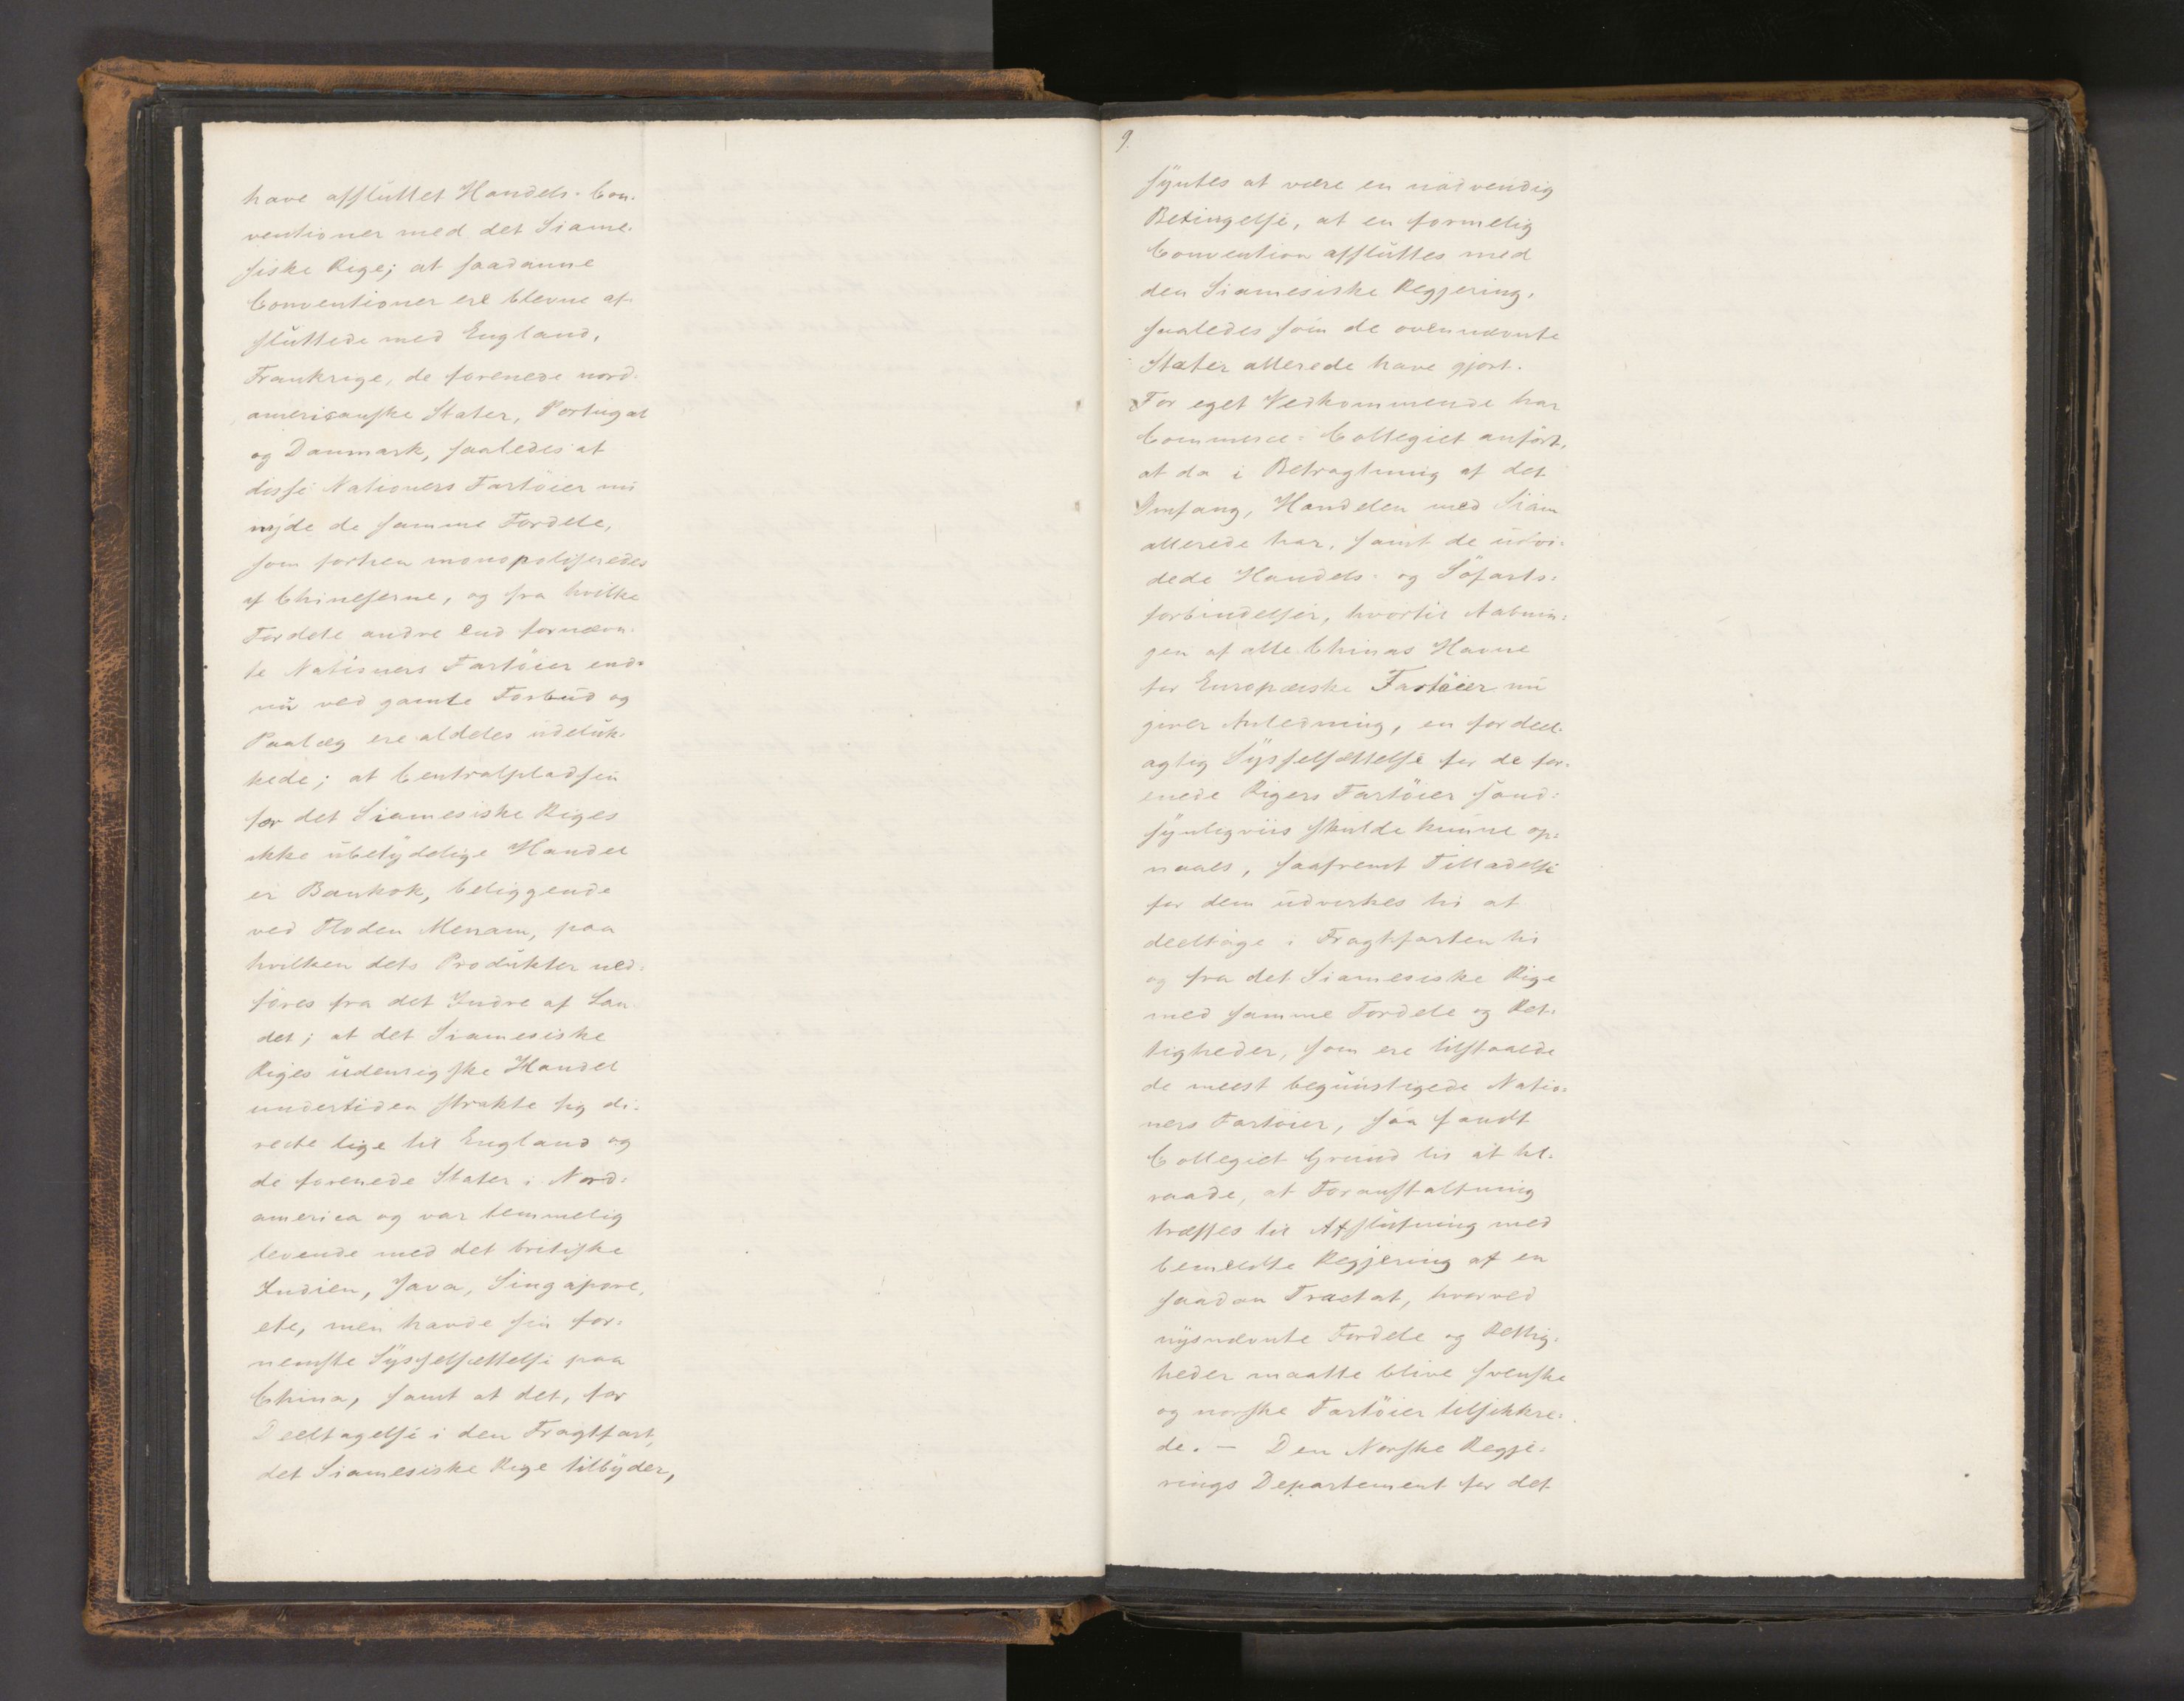 have afsluttet Handels-Con-
ventioner med det Siame-
siske Rige; at saadanne
Conventioner ere blevne af-
sluttede med England,
Frankrige, de forenede nord-
amerikanske Stater, Portugal
og Danmark, saaledes at
disse Nationers Fartöier nu
nyde de samme Fordele,
som forhen monopoliseredes
af Chineserne, og fra hvilke
Fordele andre end fornævn-
te Nationers Fartöier end-
nu ved gamle Forbud og
Paalæg ere aldeles udeluk-
kede; at Centralpladsen
for det Siamesiske Riges
ikke ubetydelige Handel
er Bankok, beliggende
ved Floden Menam, paa
hvilken dets Produkter ned-
föres fra det Indre af Lan-
det; at det Siamesiske
Riges udenrigske Handel
undertiden strakte sig di-
recte lige til England og
de forenede Stater i Nord-
america og var temmelig
levende med det britiske
Indien, Java, Singapore,
etc, men havde sin for-
nemste Sysselsættelse paa
China, samt at det, for
Deeltagelse i den Fragtfart,
det Siamesiske Rige tilbyder,
9.
syntes at være en nödvendig
Betingelse, at en formelig
Convention afsluttes med
den Siamesiske Regjering,
saaledes som de ovennævnte
Stater allerede have gjort.
For eget Vedkommende har
Commerce-Collegiet anfört,
at da i Betragtning af det
Omfang, Handelen med Siam
allerede har, samt de udvi-
dede Handels- og Söfarts-
forbindelser, hvortil Aabnin-
gen af alle Chinas Havne
for Europæiske Fartöier nu
giver Anledning, en fordeel-
agtig Sysselsættelse for de for-
enede Rigers Fartöier sand-
synligviis skulde kunne op-
naaes, saafremt Tilladelse
for dem udvirkes til at
deeltage i Fragtfarten til
og fra det Siamesiske Rige
med samme Fordele og Ret-
tigheder, som ere tilstaaede
de meest begunstigede Natio-
ners Fartöier, saa fandt
Collegiet Grund til at til-
raade, at Foranstaltning
træffes til Afslutning med
bemeldte Regjering af en
saadan Tractat, hvorved
nysnævnte Fordele og Rettig-
heder maatte blive svenske
og norske Fartöier tilsikkre-
de. – Den Norske Regje-
rings Departement for det